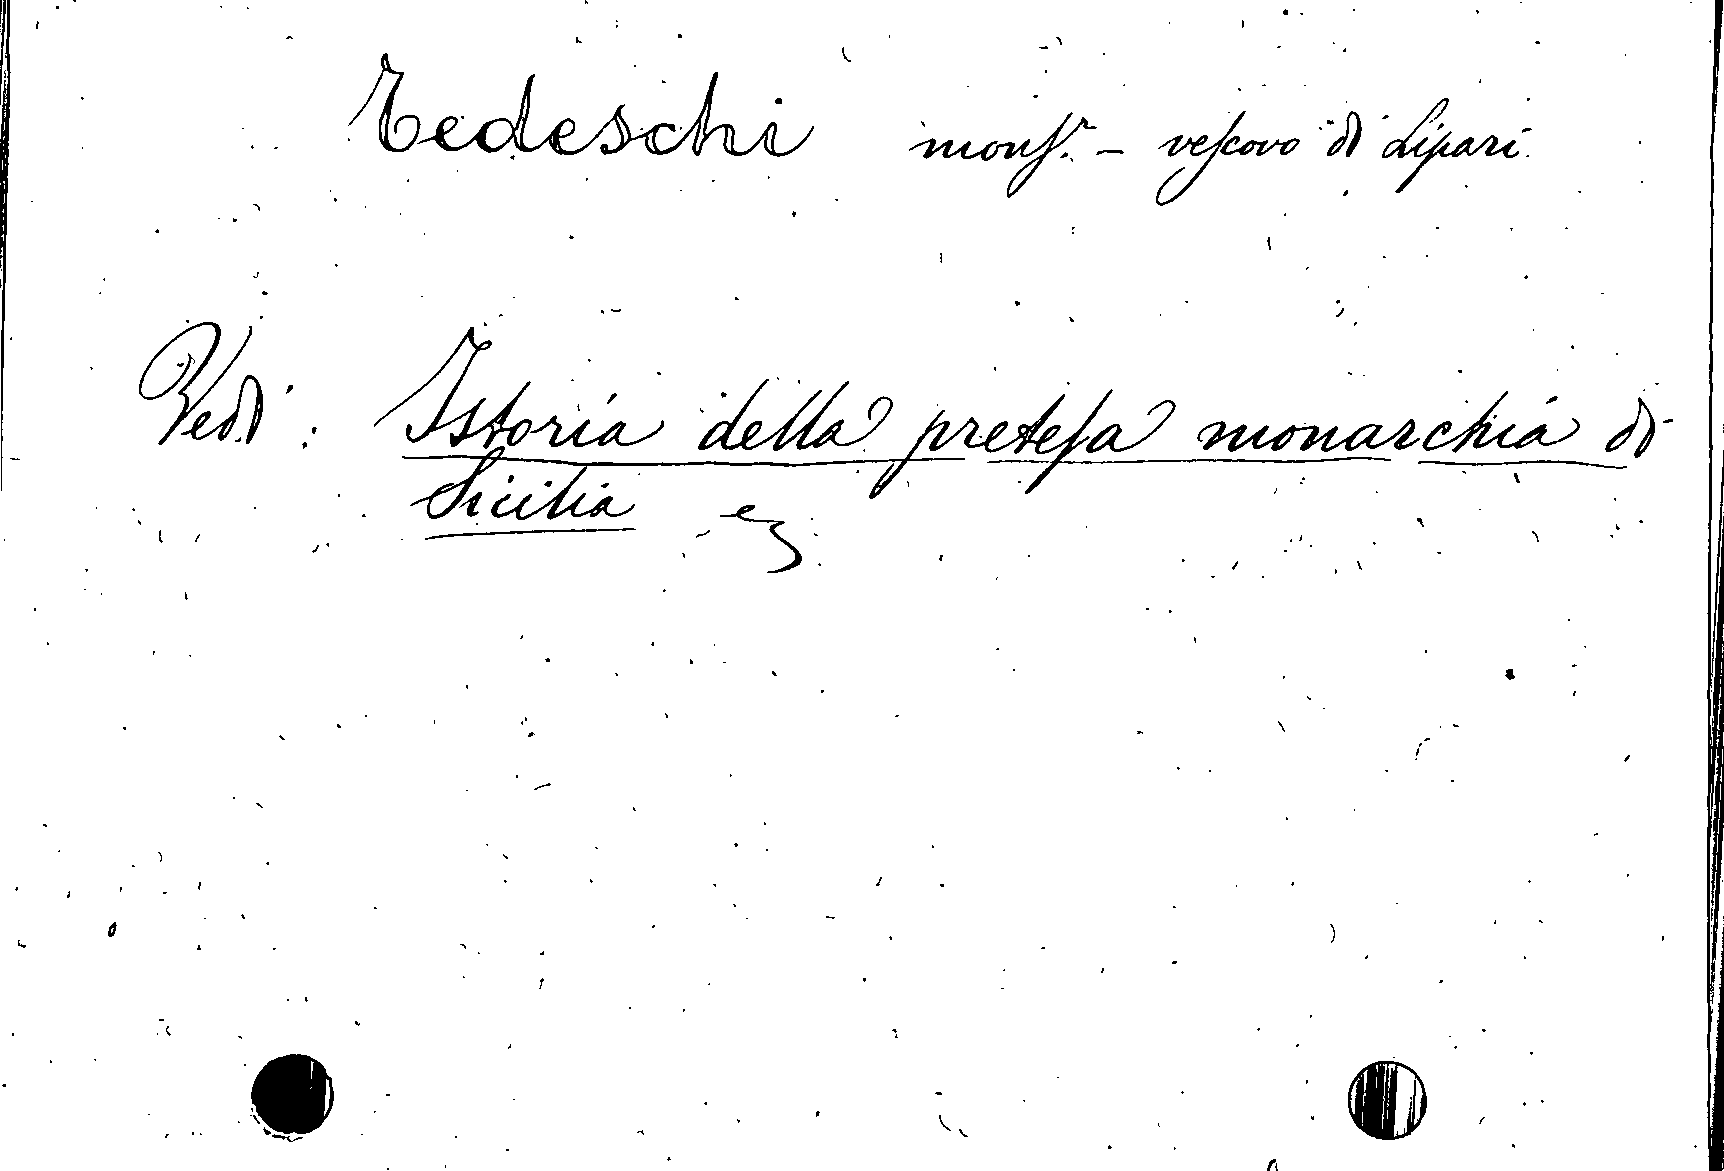 Tedeschi monſ.r - veſcovo di Lipari
Vedi: Istoria della preteſa monarchia di
Sicilia